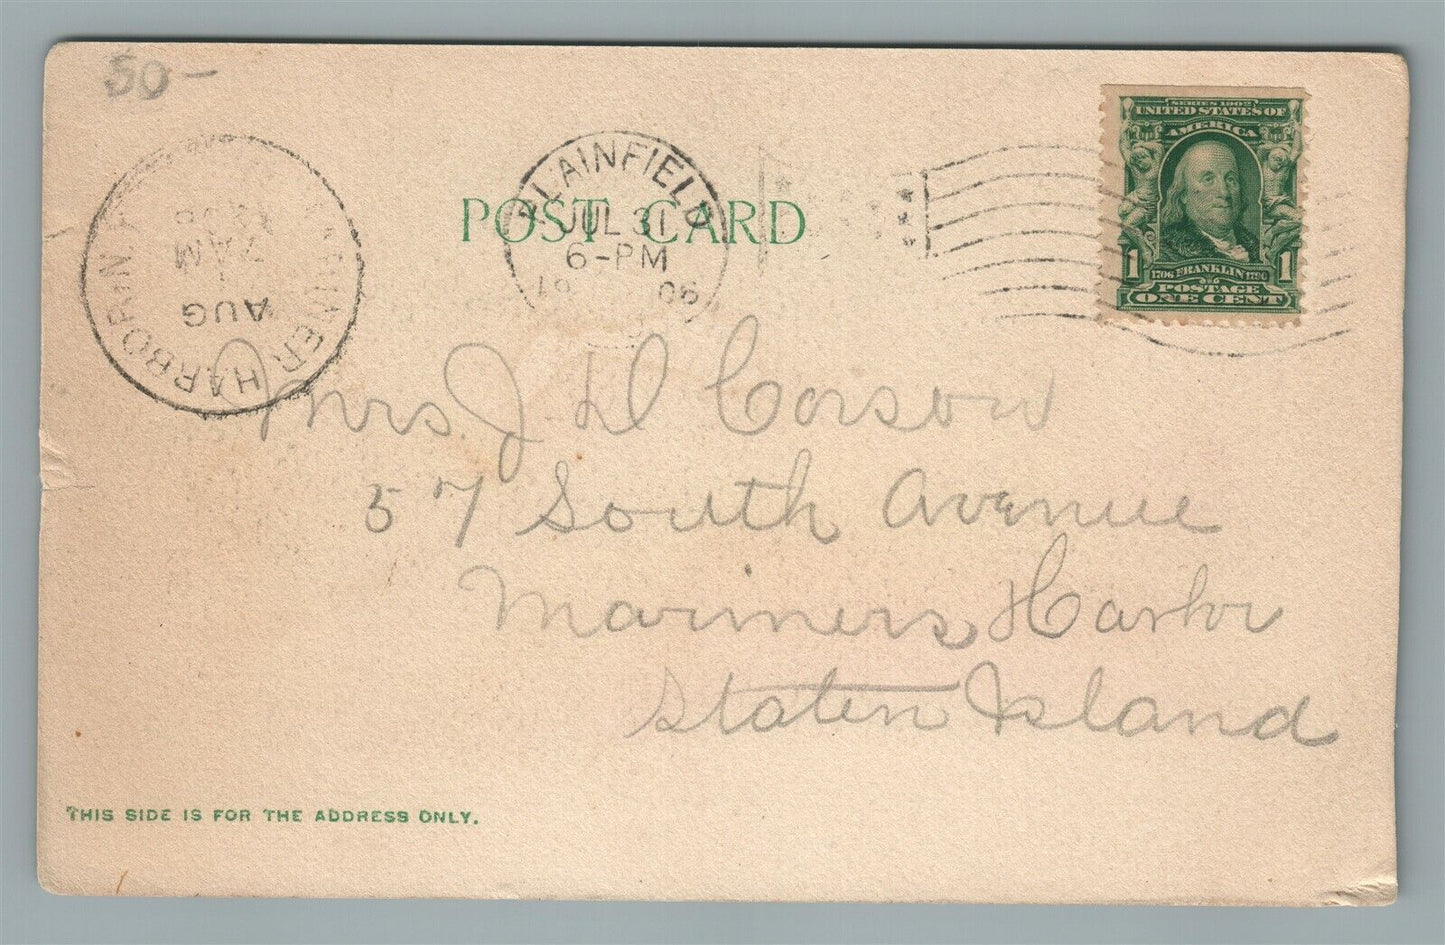 50-
PLAINFIELD
JUL 31
6-PM
19 06
POST CARD
MARINER HARBOR N.Y.
AUG
1
7 AM
SERIES 1902
UNITED STATES OF
AMERICA
1 1
1706 FRANKLIN 1790
POSTAGE
ONE CENT
Mrs. J D Corson
57 South Avenue
Mariners Harbor
Staten Island
THIS SIDE IS FOR THE ADDRESS ONLY.